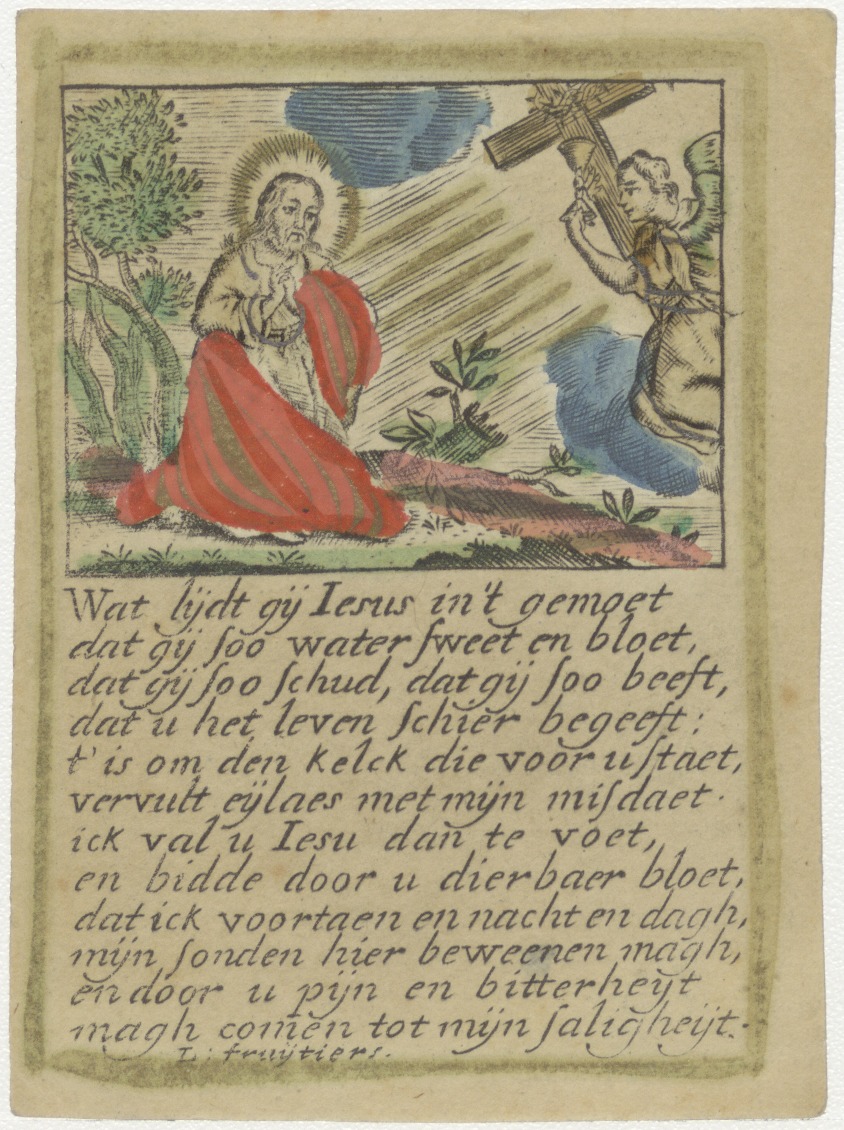 Wat lijdt gij Iesus in't gemoet
dat gij ſoo water ſweet en bloet,
dat gij ſoo ſchud, dat gij ſoo beeft,
dat u het leven ſchier begeeft:
t' is om den kelck die voor u ſtaet,
vervult eÿlaes met mijn miſdaet.
ick val u Iesu dan te voet,
en bidde door u dierbaer bloet,
dat ick voortaen en nacht en dagh,
mijn ſonden hier beweenen magh,
en door u pijn en bitterheyt
magh comen tot mijn ſaligheijt.
L: fruijtiers.